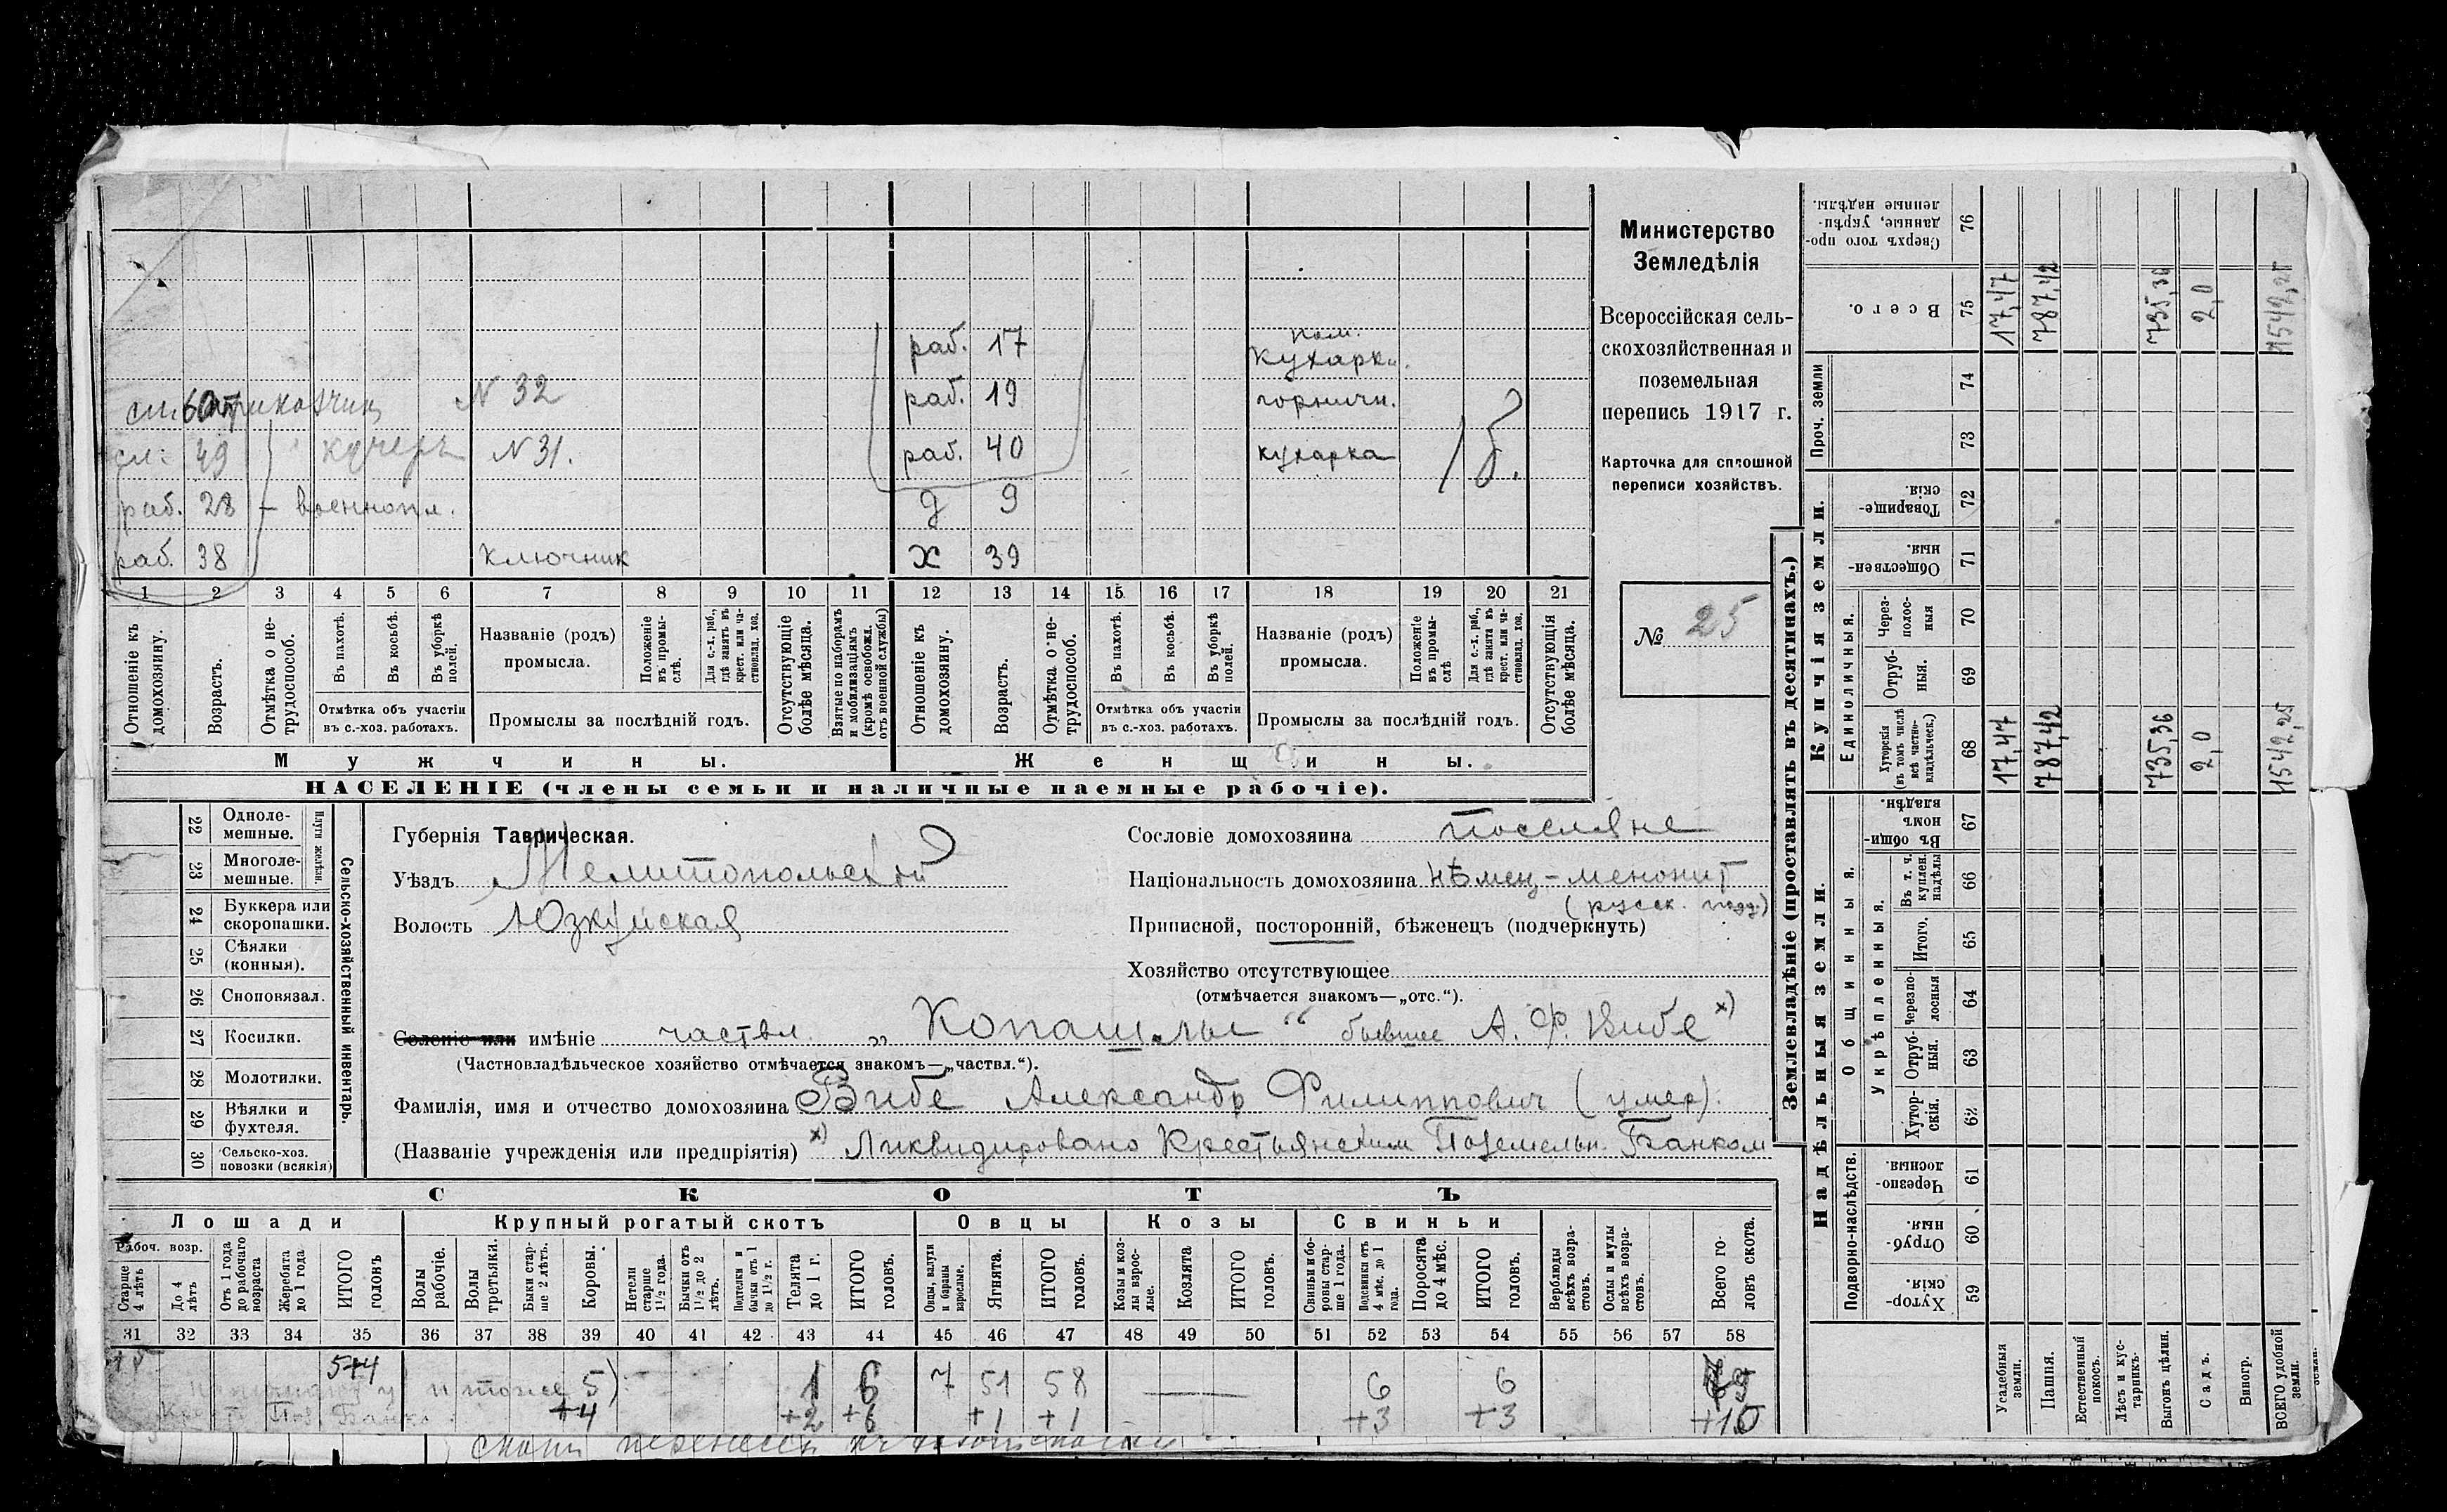 раб. 17 пом. кухарки.
сл. 60 приказчик N 32 раб. 19 горничн.
сл. 49 кучеръ N 31. раб. 40 кухарка 15.
раб. 28 – военнопл. д 9
раб. 38 ключник х 39
1 2 3 4 5 6 7 8 9 10 11 12 13 14 15 16 17 18 19 20 21
Отношеніе къ домохозяину.
Возрастъ.
Отмѣтка о нетрудоспособ.
Въ пахотѣ.
Въ косьбѣ.
Въ уборкѣ полей.
Отмѣтка объ участіи въ с.-хоз. работахъ.
Названіе (родъ) промысла.
Положеніе въ промыслѣ.
Для с.-х. раб., гдѣ занятъ въ крест. или частновлад. хоз.
Промыслы за послѣдній годъ.
Отсутствующіе болѣе мѣсяца.
Взятые по наборамъ и мобилизаціямъ (кромѣ освобожд. отъ военной службы)
Отношеніе къ домохозяину.
Возрастъ.
Отмѣтка о нетрудоспособ.
Въ пахотѣ.
Въ косьбѣ.
Въ уборкѣ полей.
Отмѣтка объ участіи въ с.-хоз. работахъ.
Названіе (родъ) промысла.
Положеніе въ промыслѣ
Для с.-х. раб., гдѣ занята въ крест. или частновлад. хоз.
Промыслы за послѣдній годъ.
Отсутствующія болѣе мѣсяца.
Мужчины. Женщины.
НАСЕЛЕНІЕ (члены семьи и наличные наемные рабочіе).
Министерство
Земледѣлія
Всероссійская сель-
скохозяйственная и
поземельная
перепись 1917 г.
Карточка для сплошной
переписи хозяйствъ.
№ 25
22 Однолемешные.
23 Многолемешные.
Плуги желѣзн.
24 Буккера или скоропашки.
25 Сѣялки (конныя).
26 Сноповязал.
27 Косилки.
28 Молотилки.
29 Вѣялки и фухтеля.
30 Сельско-хоз. повозки (всякія)
Сельско-хозяйственный инвентарь.
Губернія Таврическая.
Уѣздъ Мелитопольскій
Волость Юзкуйская
Сословіе домохозяина поселяне
Національность домохозяина нѣмец-менонит
(русск. подд.)
Приписной, посторонній, бѣженецъ (подчеркнуть)
Хозяйство отсутствующее
(отмѣчается знакомъ—„отс.“).
Селеніе или имѣніе частвл. „Копашлы“ бывшее А. Ф. Вибе х)
(Частновладѣльческое хозяйство отмѣчается знакомъ—„частвл.“).
Фамилія, имя и отчество домохозяина Вибе Александр Филиппович (умер).
(Названіе учрежденія или предпріятія) х) Ликвидировано Крестьянским Поземельн. Банком
СКОТЪ
Лошади Крупный рогатый скотъ Овцы Козы Свиньи
Рабоч. возр.
Старше 4 лѣтъ
До 4 лѣтъ
Отъ 1 года до рабочаго возраста
Жеребята до 1 года
ИТОГО головъ
Волы рабочіе.
Волы третьяки.
Быки старше 2 лѣтъ.
Коровы.
Нетели старше 1½ года.
Бычки отъ 1½ до 2 лѣтъ.
Подтелки и бычки отъ 1 до 1½ г.
Телята до 1 г.
ИТОГО головъ.
Овцы, валухи и бараны взрослые.
Ягнята.
ИТОГО головъ.
Козы и козлы взрослые.
Козлята
ИТОГО головъ.
Свиньи и боровы старше 1 года.
Подсвинки отъ 4 мѣс. до 1 года.
Поросята до 4 мѣс.
ИТОГО головъ.
Верблюды всѣхъ возрастовъ.
Ослы и мулы всѣхъ возрастовъ.
Всего головъ скота.
31 32 33 34 35 36 37 38 39 40 41 42 43 44 45 46 47 48 49 50 51 52 53 54 55 56 57 58
5+4 5) 1 6 7 51 58 — 6 6
+4 +2 +6 +1 +1 +3 +3 +10
скот перенесен
Землевладѣніе (проставлять въ десятинахъ.)
Надѣльныя земли. Купчія земли.
Подворно-наслѣдств.
Общинныя.
Укрѣпленныя.
Единоличныя.
Проч. земли
Хуторскія. 59
Отрубныя. 60
Черезполосныя. 61
Хуторскія. 62
Отрубныя. 63
Черезполосныя 64
Итого. 65
Въ т. ч. куплен. надѣлы 66
Въ общинномъ владѣн. 67
Хуторскія (въ томъ числѣ всѣ частновладѣльческ.) 68
Отрубныя. 69
Черезполосныя 70
Общественныя. 71
Товарищескія. 72
73
74
Всего. 75
Сверхъ того проданные, укрѣпленные надѣлы. 76
Усадебныя земли. 17,47 17,47
Пашня. 787,42 787,42
Естественный покосъ.
Лѣсъ и кустарникъ.
Выгонъ цѣлин. 735,36 735,36
Садъ. 2,0 2,0
Виногр.
ВСЕГО удобной земли. 1542,25 1542,25